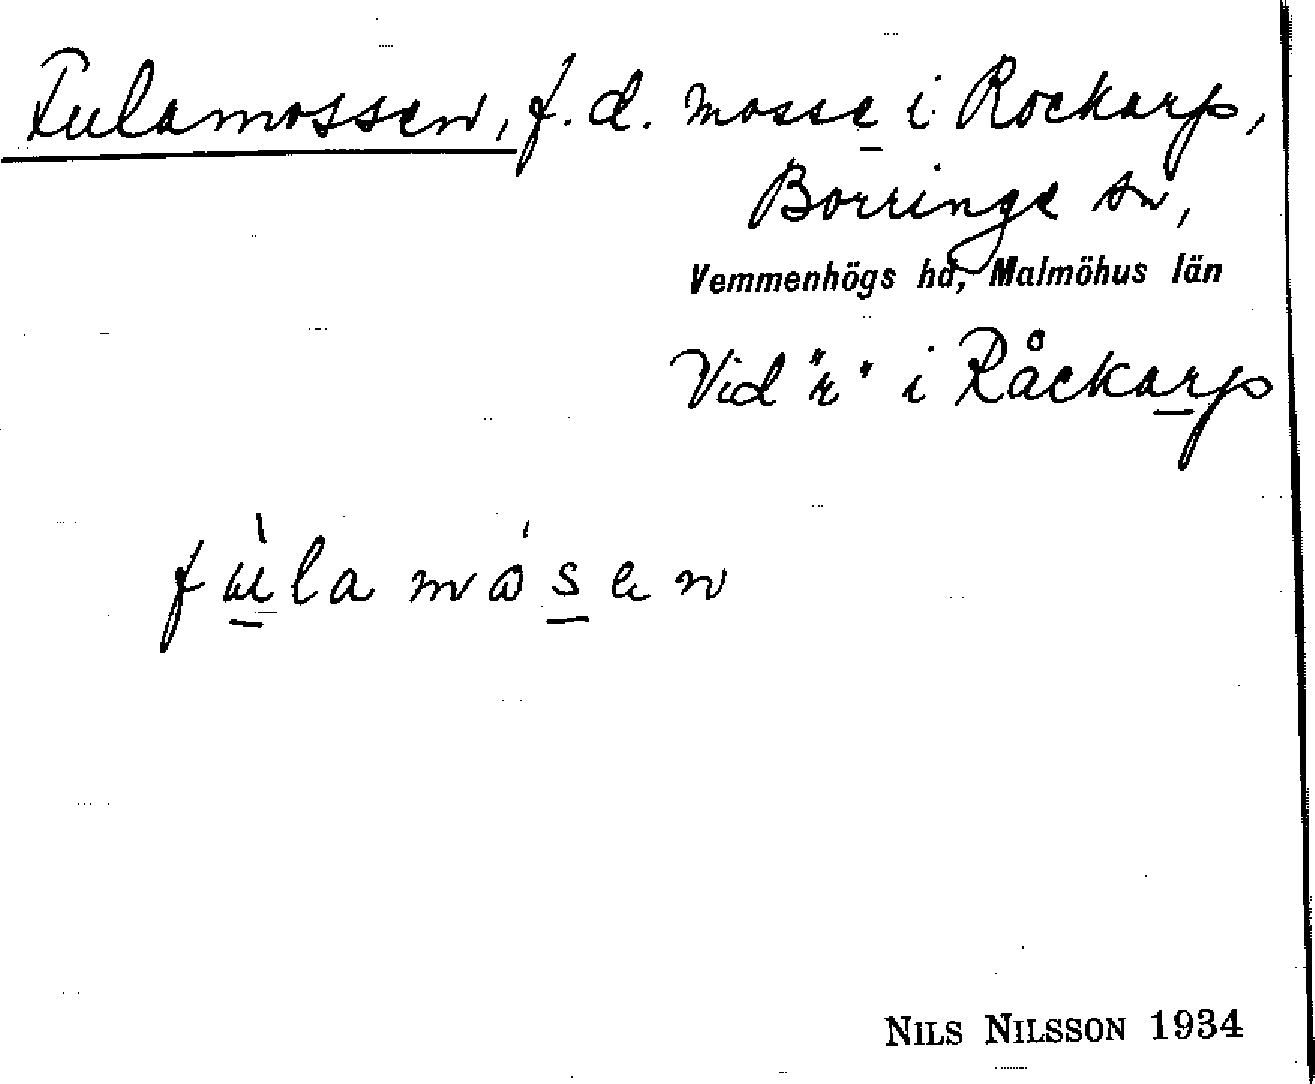 Fulamossen, f.d. mosse i Rockarp,
Borringe sn,
Vemmenhögs hd, Malmöhus län
Vid "r" i Råckarp
fùla mósen
NILS NILSSON 1934